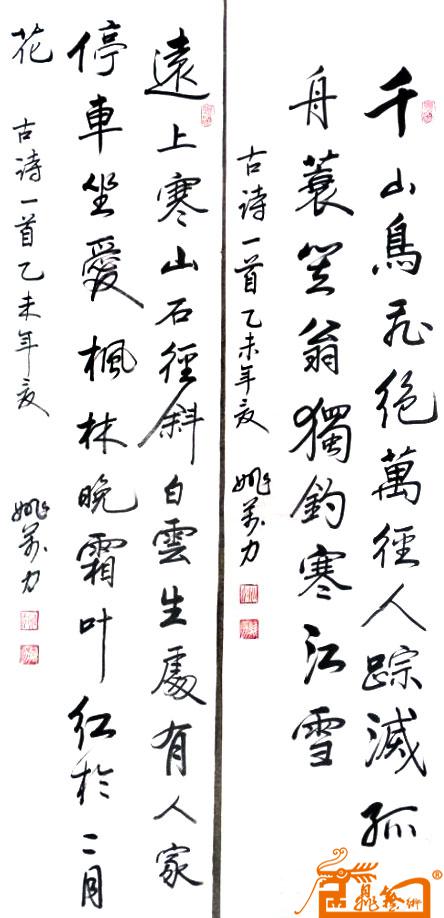 千山鳥飛絶萬徑人踪滅孤
舟蓑笠翁獨釣寒江雪
古诗一首乙未年夏
姚万力
遠上寒山石徑斜白雲生處有人家
停車坐愛楓林晚霜叶红於二月
花
古诗一首乙未年夏
姚万力